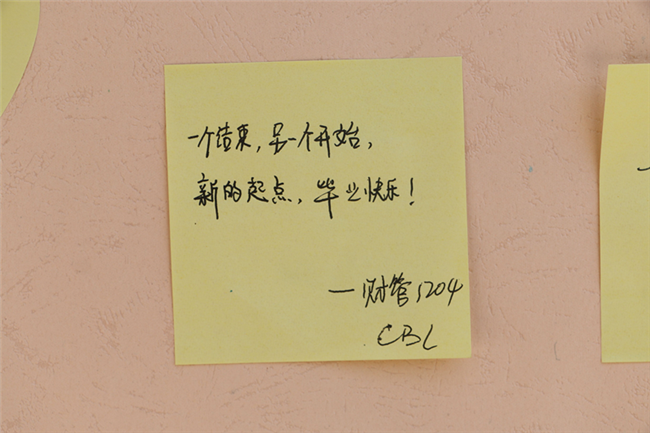 一个结束，另一个开始，
新的起点，毕业快乐！
—财管1204
CBL